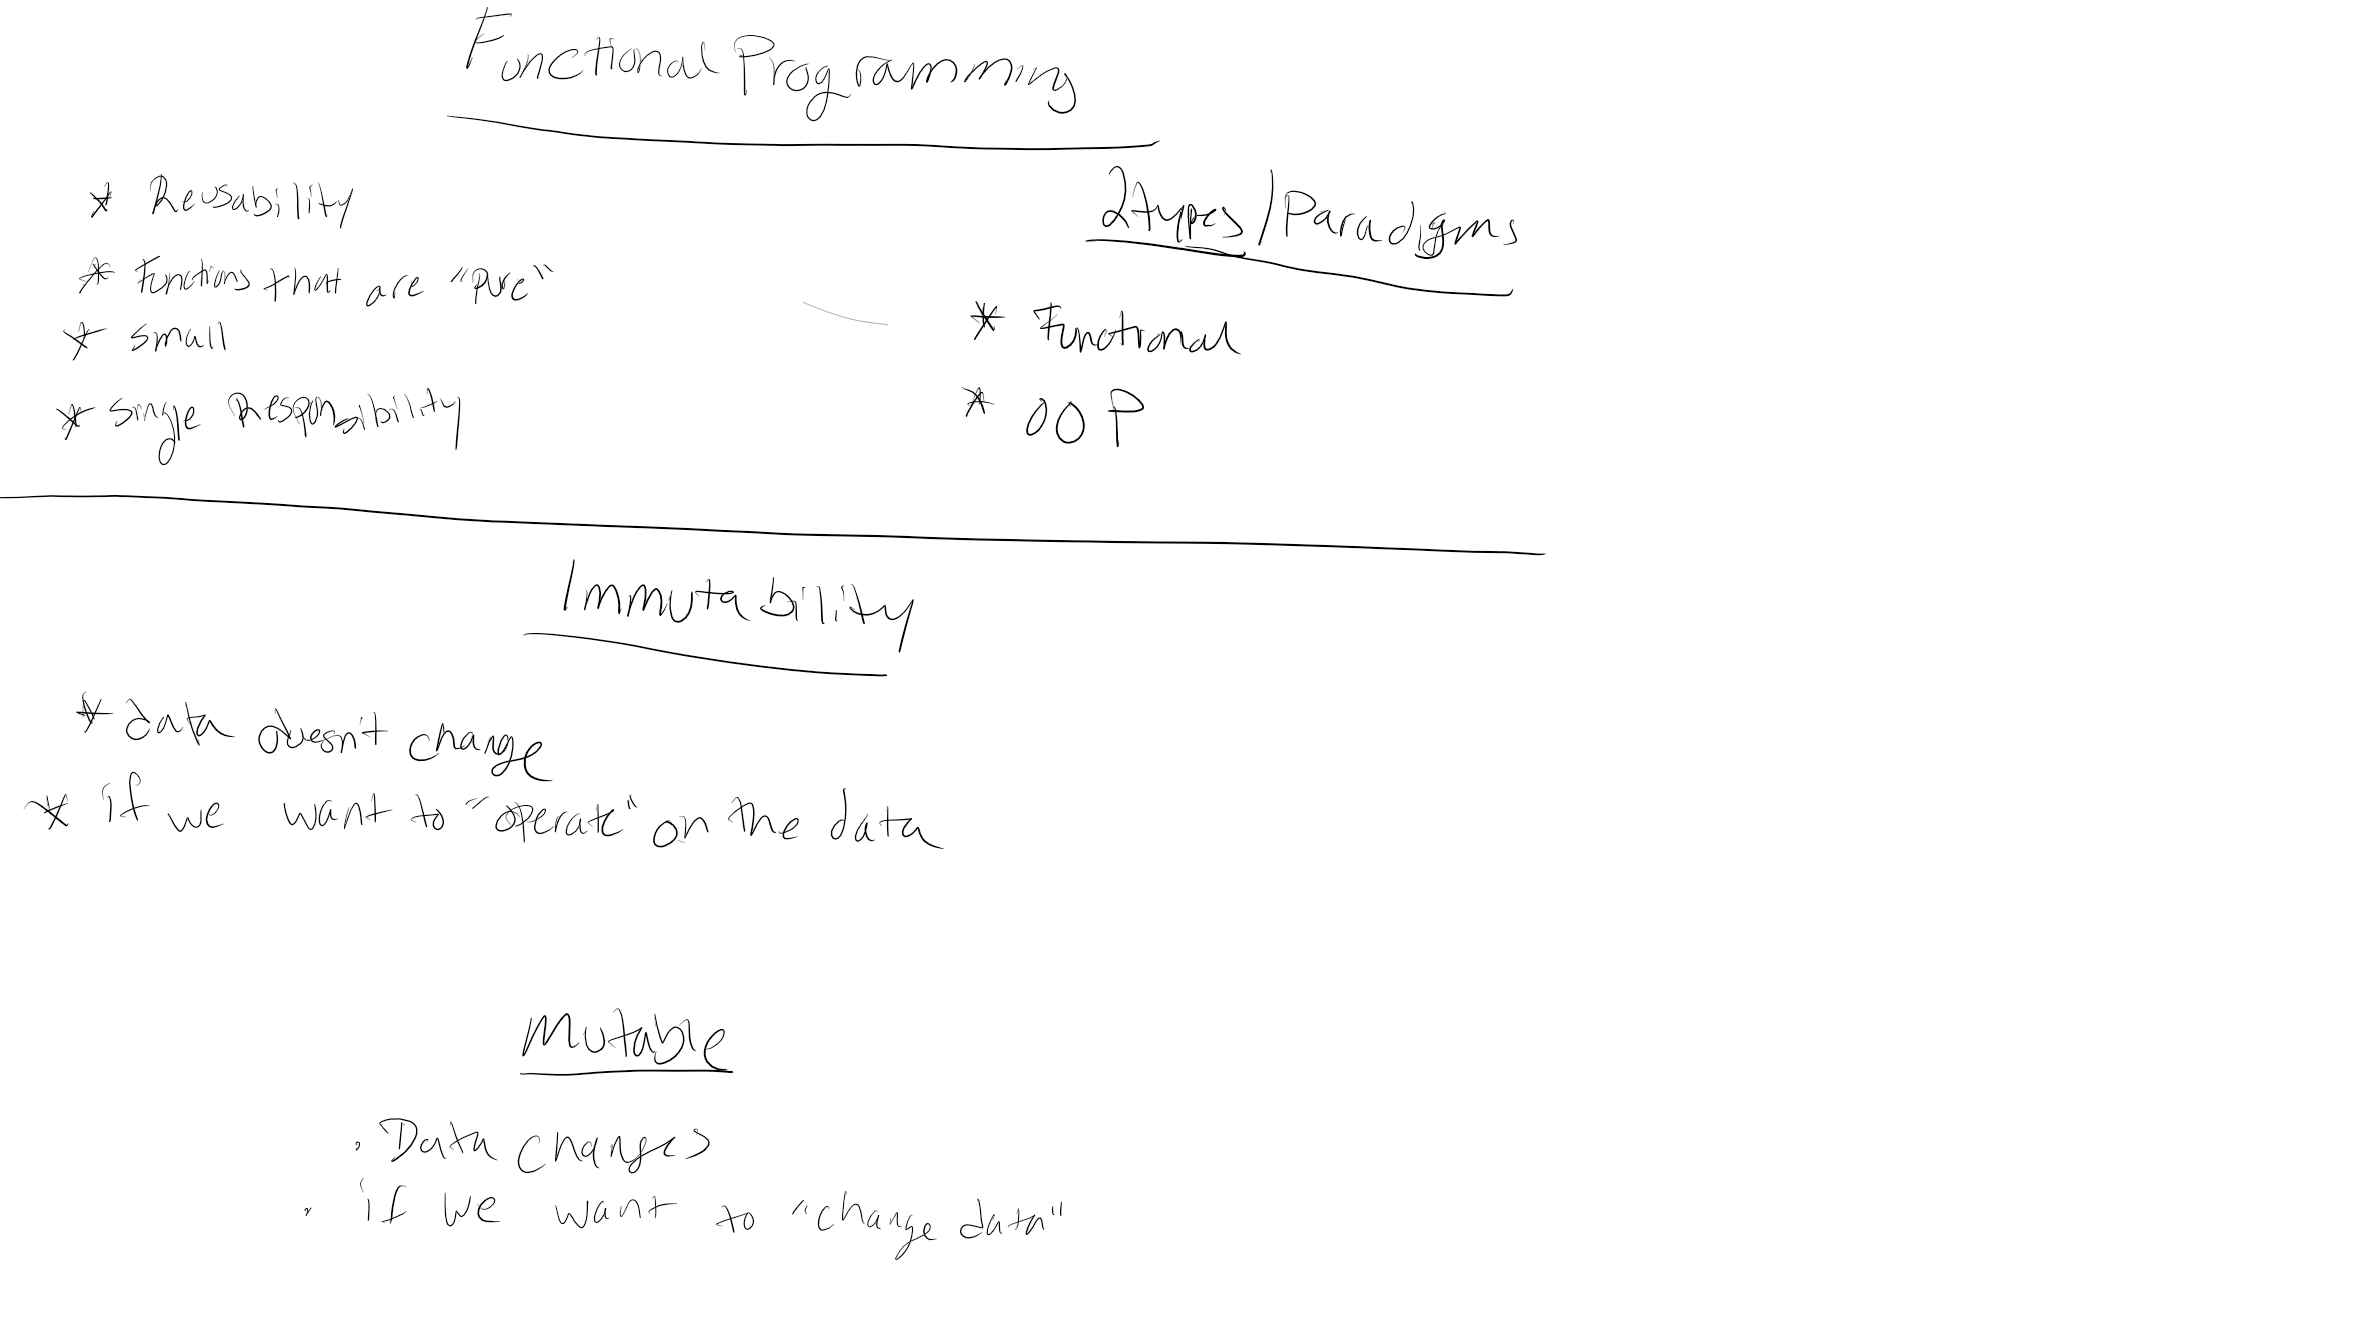 Functional Programming
* Reusability
* Functions that are "pure"
* small
* Single Responsibility
2 types / Paradigms
* Functional
* OOP
Immutability
* data doesn't change
* if we want to "operate" on the data
Mutable
. Data changes
. if we want to "change data"